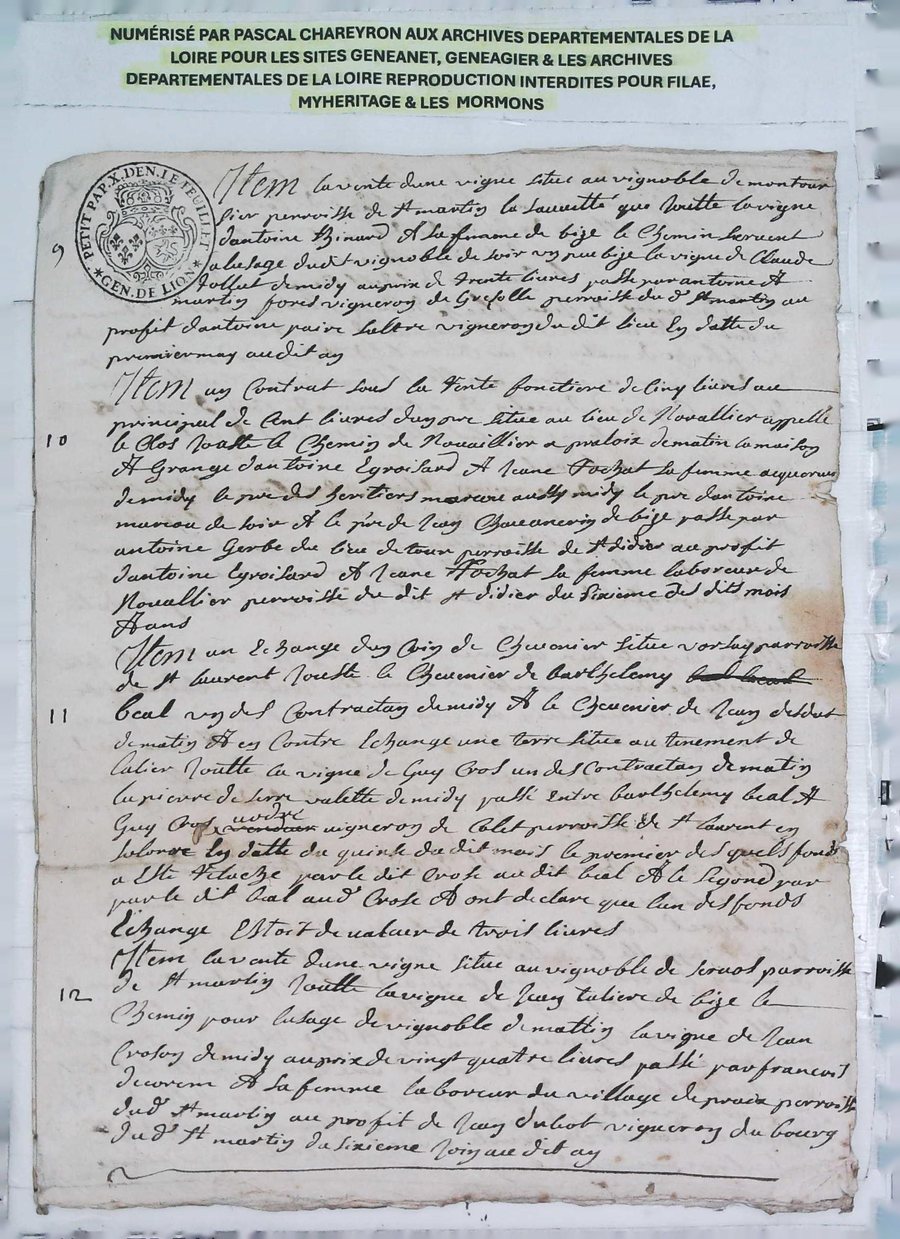 NUMÉRISÉ PAR PASCAL CHAREYRON AUX ARCHIVES DEPARTEMENTALES DE LA
LOIRE POUR LES SITES GENEANET, GENEAGIER & LES ARCHIVES
DEPARTEMENTALES DE LA LOIRE REPRODUCTION INTERDITES POUR FILAE,
MYHERITAGE & LES MORMONS
PETIT PAP. X. DEN. LE FEUILLET
GEN. DE LION
Item la vente dune vigne situe au vignoble de montour
sier perroisse de st martin la sauveté que Jouste la vigne
dantoine Binard & sa femme de bize le Chemin servent
a lusage dudt vignoble de soir un pue bize la vigne de Claude
de midy au prix de trente livres passe par antoine &
martin fores vigneron de Gresolle perroisse du dt st martin au
profit dantoine paire laltre vigneron du dit lieu En datte du
premier may au dit an
9
Item un Contrat sous la Vente fonciere de Cinq livres au
principal de Cent livres dun pre situe au lieu de Novallier appelle
le Clos Jouste le Chemin de Novaillier a praloix de matin la maison
& Grange dantoine Egroisard & Jeane Pochat sa femme aquereurs
de midy le pre des heritiers mareau aussy midy le pre dantoine
mareau de soir & le pre de Jean de bize passe par
antoine Gerbe du lieu de tour perroisse de st didier au profit
dantoine Egroisard & Jeane Pochat sa femme laboreur de
Novallier perroisse du dit st didier du sixieme des dits mois
& ans
10
Item un Echange dun Coin de Chevenier situe parroisse
de st laurent Jouste le Chevenier de barthelemy
beal un des Contractan de midy & le Chevenier de Jean
de matin & en Contre Echange une terre situe au tenement de
Jouste la vigne de Guy Cros un des Contractan de matin
la pierre de serre valette de midy passé Entre barthelemy beal &
Guy Cros vigneron de Colet perroisse de st laurent en
solorre En datte du quinse du dit mois le premier des quels fonds
a Este relache par le dit Crose au dit beal & le segond par
par le dit beal aud Crose & ont declare que lun des fonds
Echange Estoit de valuer de trois livres
11
Item la vente dune vigne situe au vignoble de parroisse
de st martin Jouste la vigne de Jean taliere de bize le
Chemin pour lusage de vignoble de mattin la vigne de Jean
Croson de midy au prix de vingt quatre livres passé par francois
decorem & sa femme laboreur du village de perroisse
dudt st martin au profit de Jean dubot vigneron du bourg
du dt st martin du sixieme Join au dit an
12